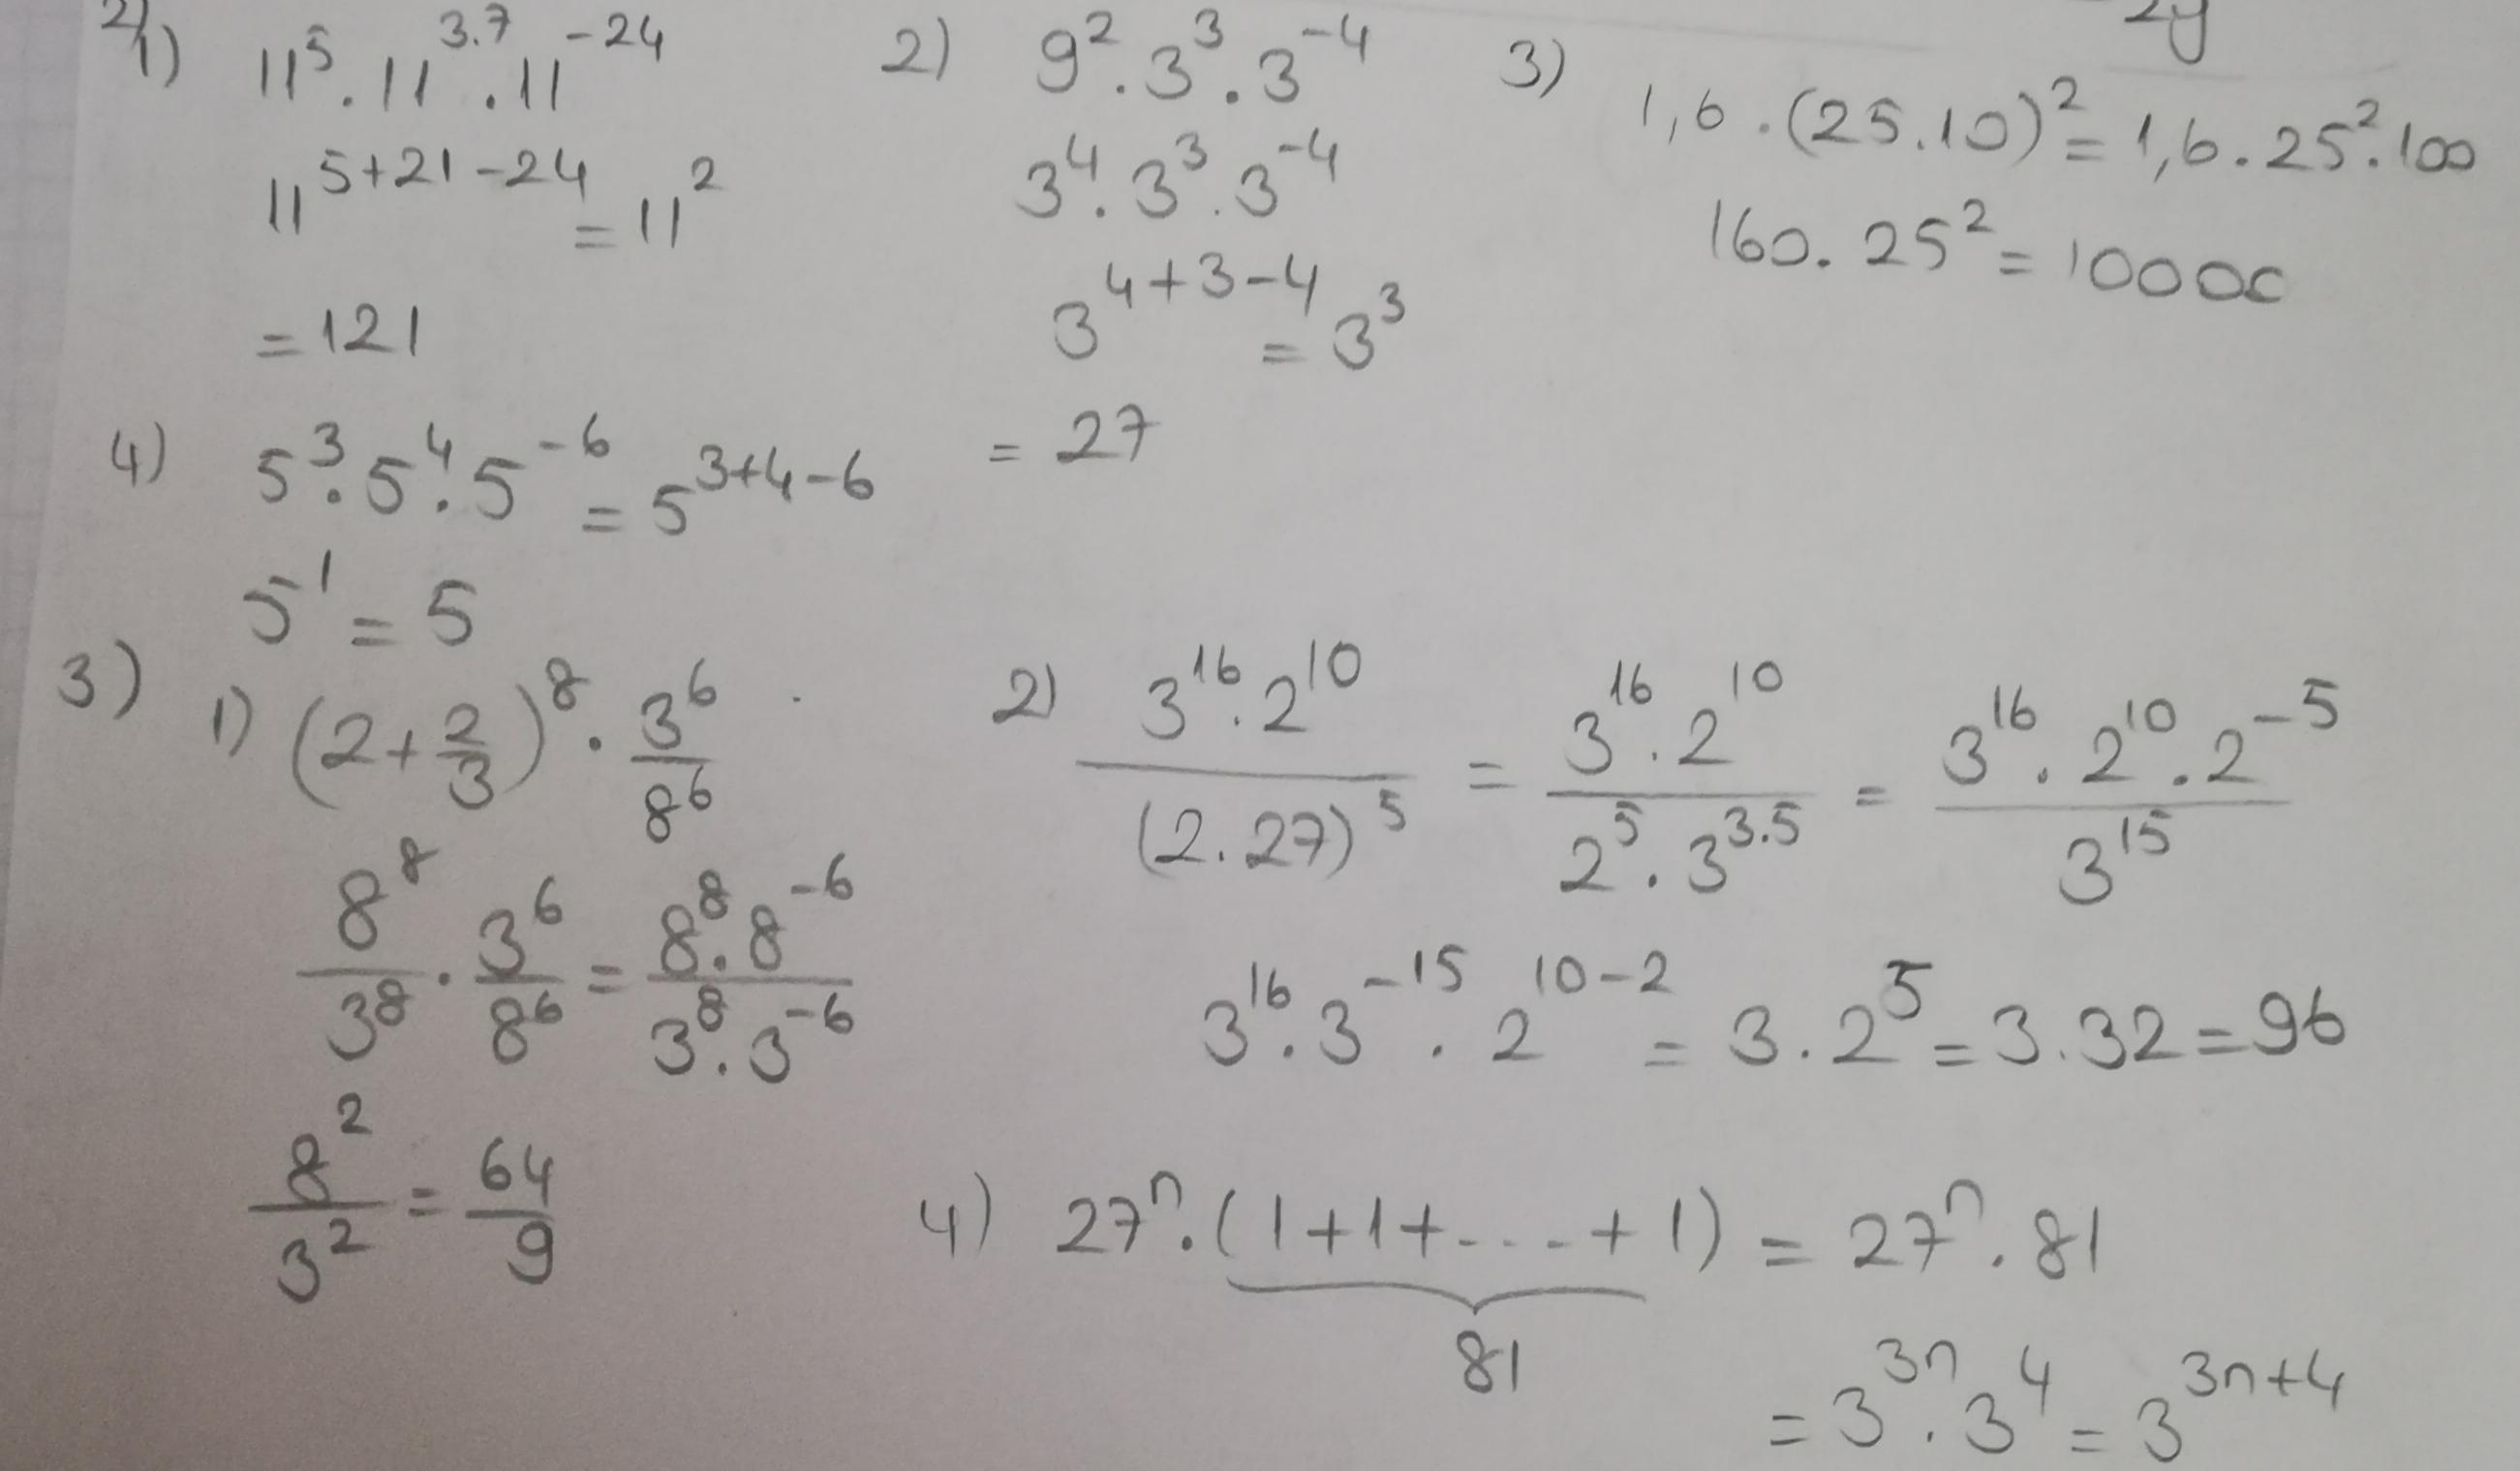 2y
2)
1) 11⁵ . 11³·⁷ . 11⁻²⁴
11⁵⁺²¹⁻²⁴ = 11²
= 121
2) 9² . 3³ . 3⁻⁴
3⁴ . 3³ . 3⁻⁴
3⁴⁺³⁻⁴ = 3³
= 27
3) 1,6 . (25.10)² = 1,6 . 25² . 100
160 . 25² = 10000
4) 5³ . 5⁴ . 5⁻⁶ = 5³⁺⁴⁻⁶
5¹ = 5
3)
1) (2 + 2/3)⁸ . 3⁶/8⁶
8⁸/3⁸ . 3⁶/8⁶ = 8⁸ . 8⁻⁶ / 3⁸ . 3⁻⁶
8²/3² = 64/9
2) 3¹⁶ . 2¹⁰ / (2 . 27)⁵ = 3¹⁶ . 2¹⁰ / 2⁵ . 3³·⁵ = 3¹⁶ . 2¹⁰ . 2⁻⁵ / 3¹⁵
3¹⁶ . 3⁻¹⁵ . 2¹⁰⁻² = 3 . 2⁵ = 3 . 32 = 96
4) 27ⁿ . (1 + 1 + .... + 1) = 27ⁿ . 81
81
= 3³ⁿ . 3⁴ = 3³ⁿ⁺⁴